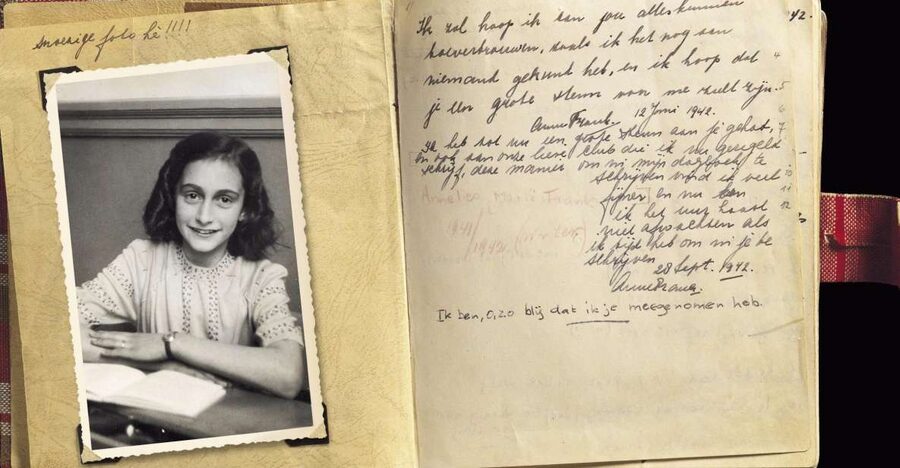 snoezige foto hè!!!!
Ik zal hoop ik aan jou alles kunnen
toevertrouwen, zoals ik het nog aan
niemand gekund heb, en ik hoop dat
je een grote steun voor me zult zijn.
Anne Frank. 12 Juni 1942.
Ik heb tot nu een grote steun aan je gehad,
en ook aan onze lieve club die ik nu geregeld
schrijf, deze manier om in mijn dagboek te
schrijven vind ik veel
fijner en nu kan
ik het uur haast
niet afwachten als
ik tijd heb om in je te
schrijven
28 Sept. 1942.
Anne Frank.
Ik ben, o, zo blij dat ik je meegenomen heb.
42.
5
6
7
10
11
12